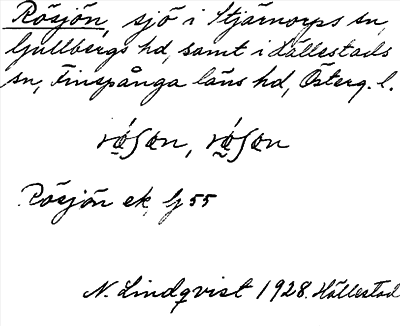 Rösjön, sjö i Stjärnorps sn,
Gullbergs hd, samt i Hällestads
sn, Finspånga läns hd, Österg. l.
Rösjön ek G 55
N. Lindqvist 1928. Hällestad